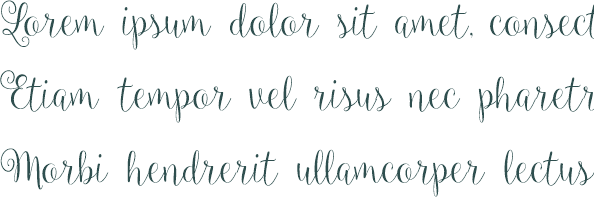 Lorem ipsum dolor sit amet, consect
Etiam tempor vel risus nec pharetr
Morbi hendrerit ullamcorper lectus